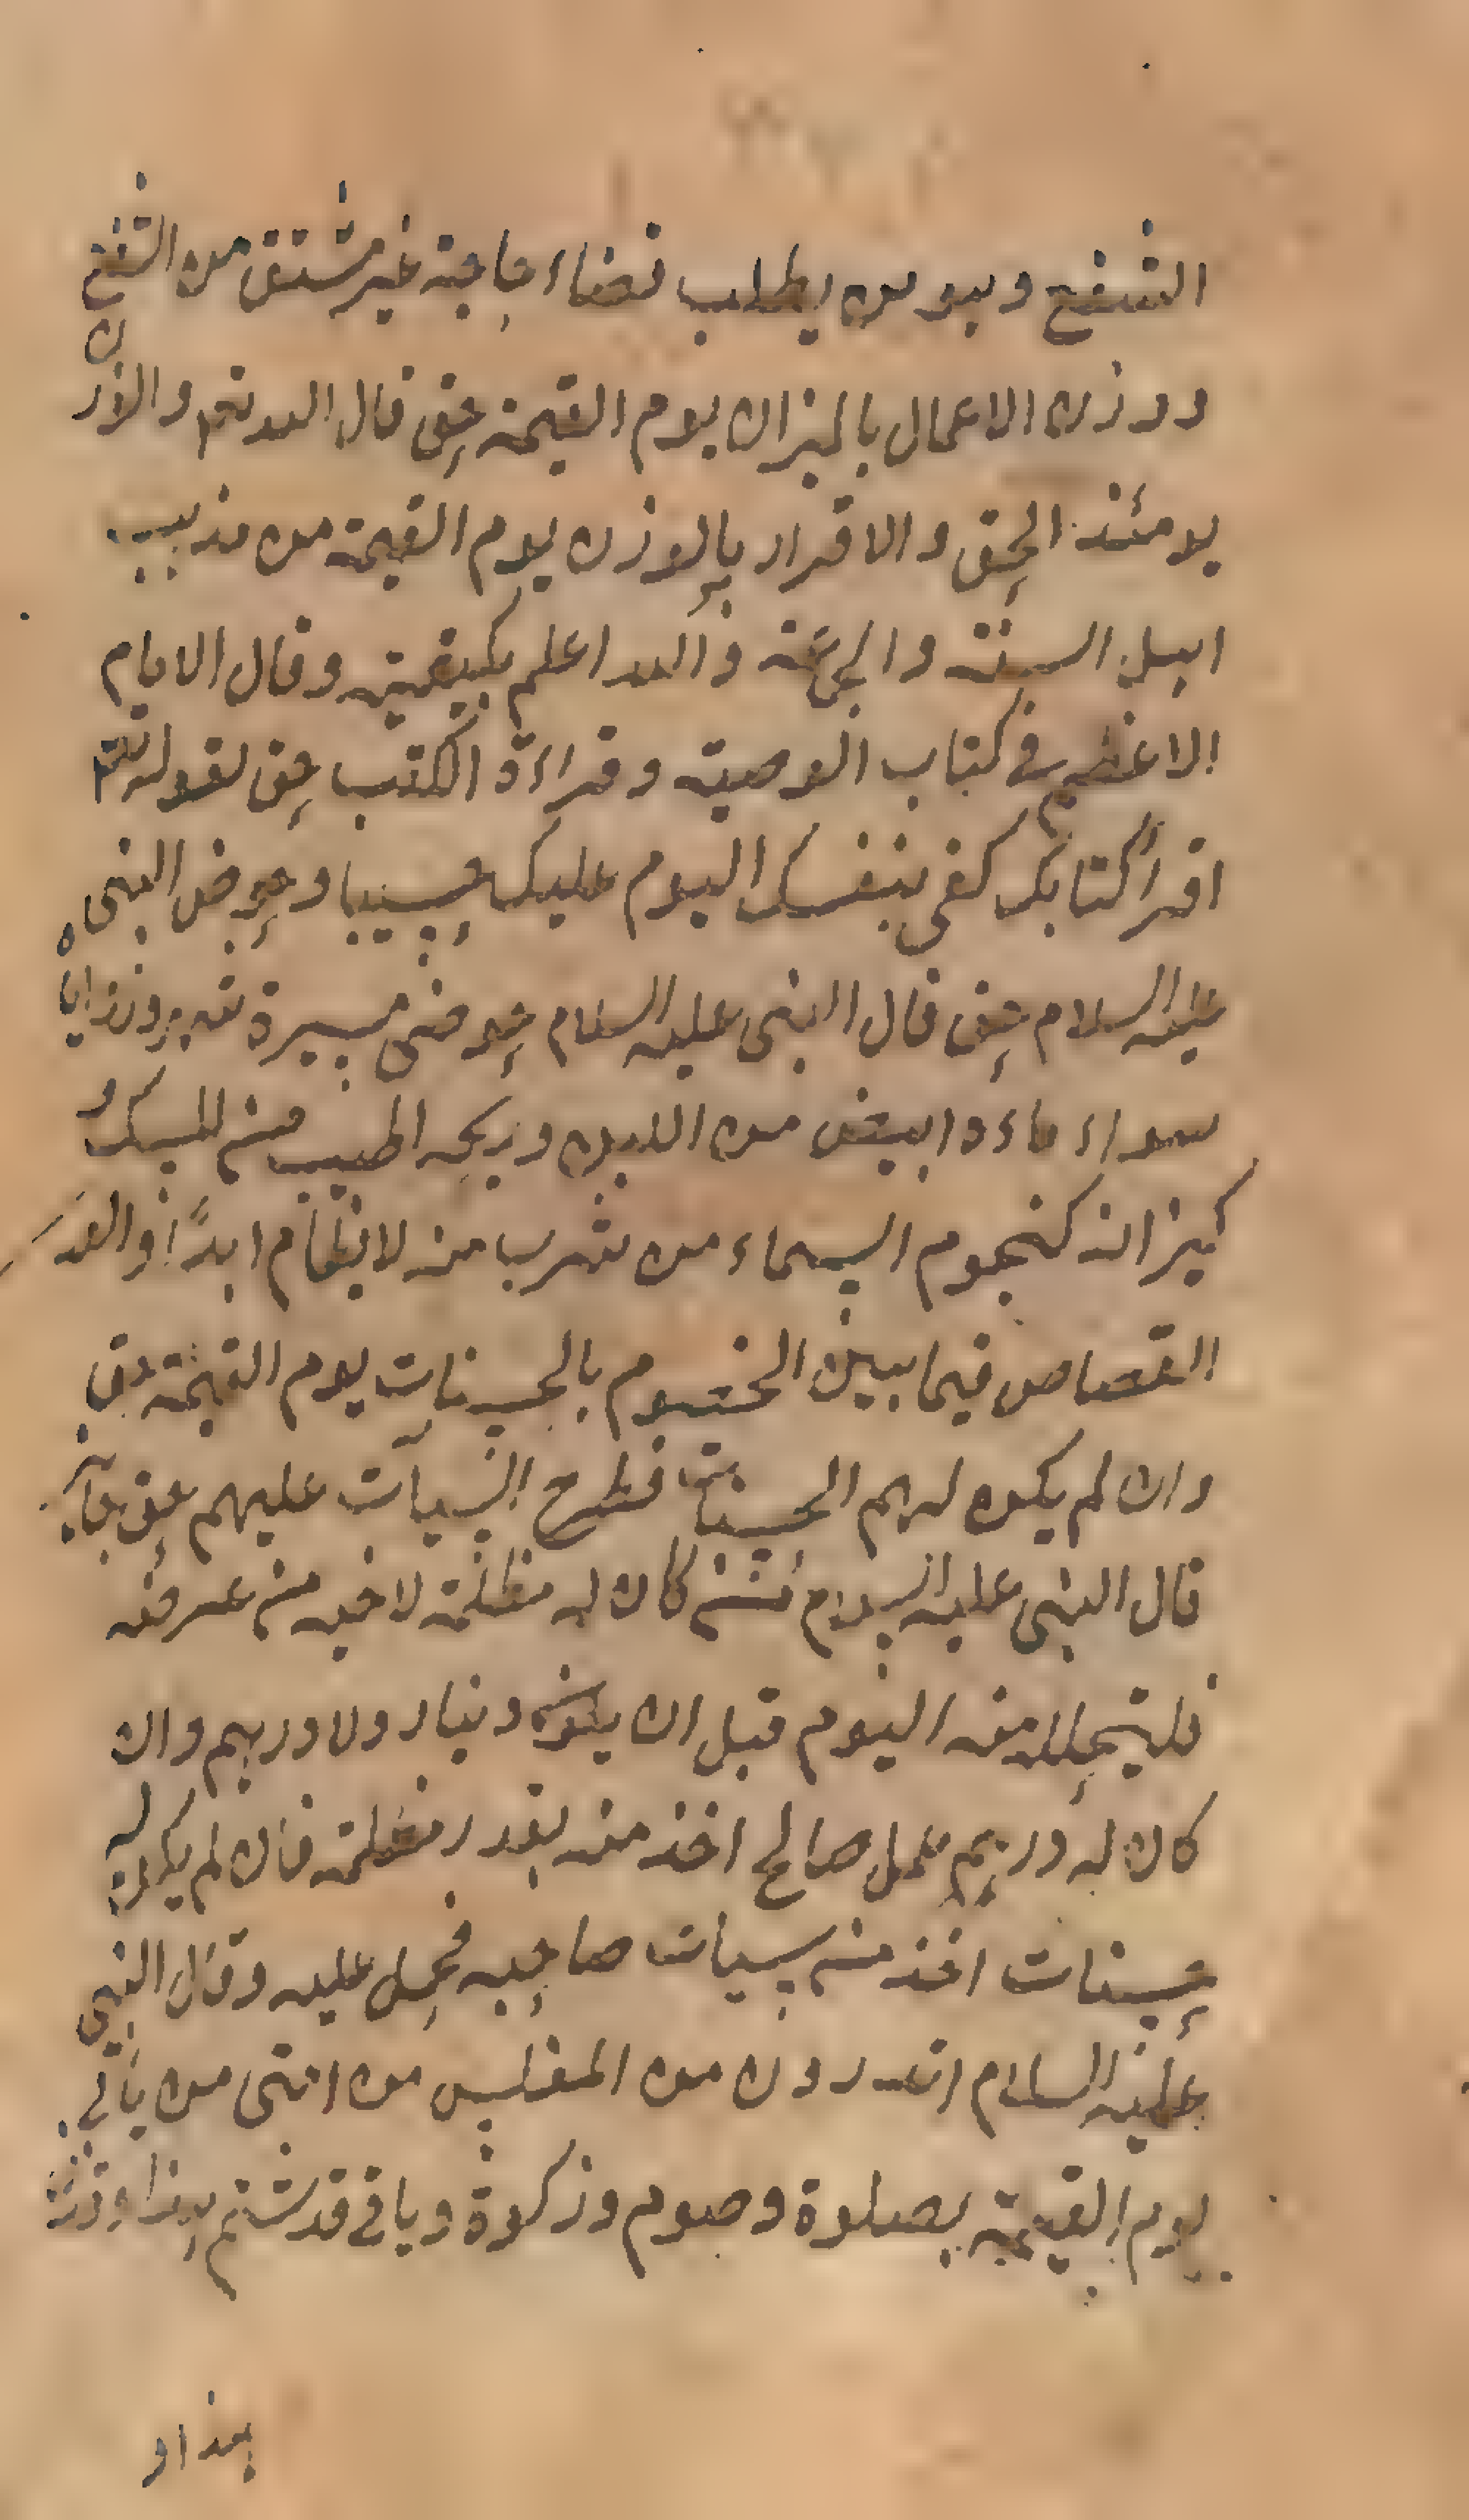 الشفع وهو من يطلب قضاء حاجة غير مشتق من الشفع
ووزن الاعمال بالميزان يوم القيمة حق قال الله تعم والوزن
يومئذ الحق والاقرار بالوزن يوم القيمة من مذهب
اهل السنة والجماعة والله اعلم بكيفيته وقال الامام
الاعظم في كتاب الوصية وقراءة الكتب حق لقوله تعم
اقرأ كتابك كفى بنفسك اليوم عليك حسيبا وحوض النبى
عليه السلام حق قال النبى عليه السلام حوضى مسيرة شهر وزواياه
سواء ماءه ابيض من اللبن وريحه اطيب من المسك و
كيزانه كنجوم السماء من شرب منه لا يظمأ ابدًا و
القصاص فيما بين الخصوم بالحسنات يوم القيمة حق
وان لم يكن لهم الحسنات فطرح السيآت عليهم حق جائز
قال النبى عليه السلام من كان له مظلمة لاخيه من عرضه
فليتحلله منه اليوم قبل ان يكون دينار ولا درهم وان
كان له درهم عمل صالح اخذ منه بقدر مظلمته فان لم يكن له
حسنات اخذ من سيات صاحبه فحمل عليه وقال النبى
عليه السلام اتدرون من المفلس من امتى من يأتى
يوم القيمة بصلوة وصوم وزكوة ويأتى قد شتم هذا وقذف
هذا و